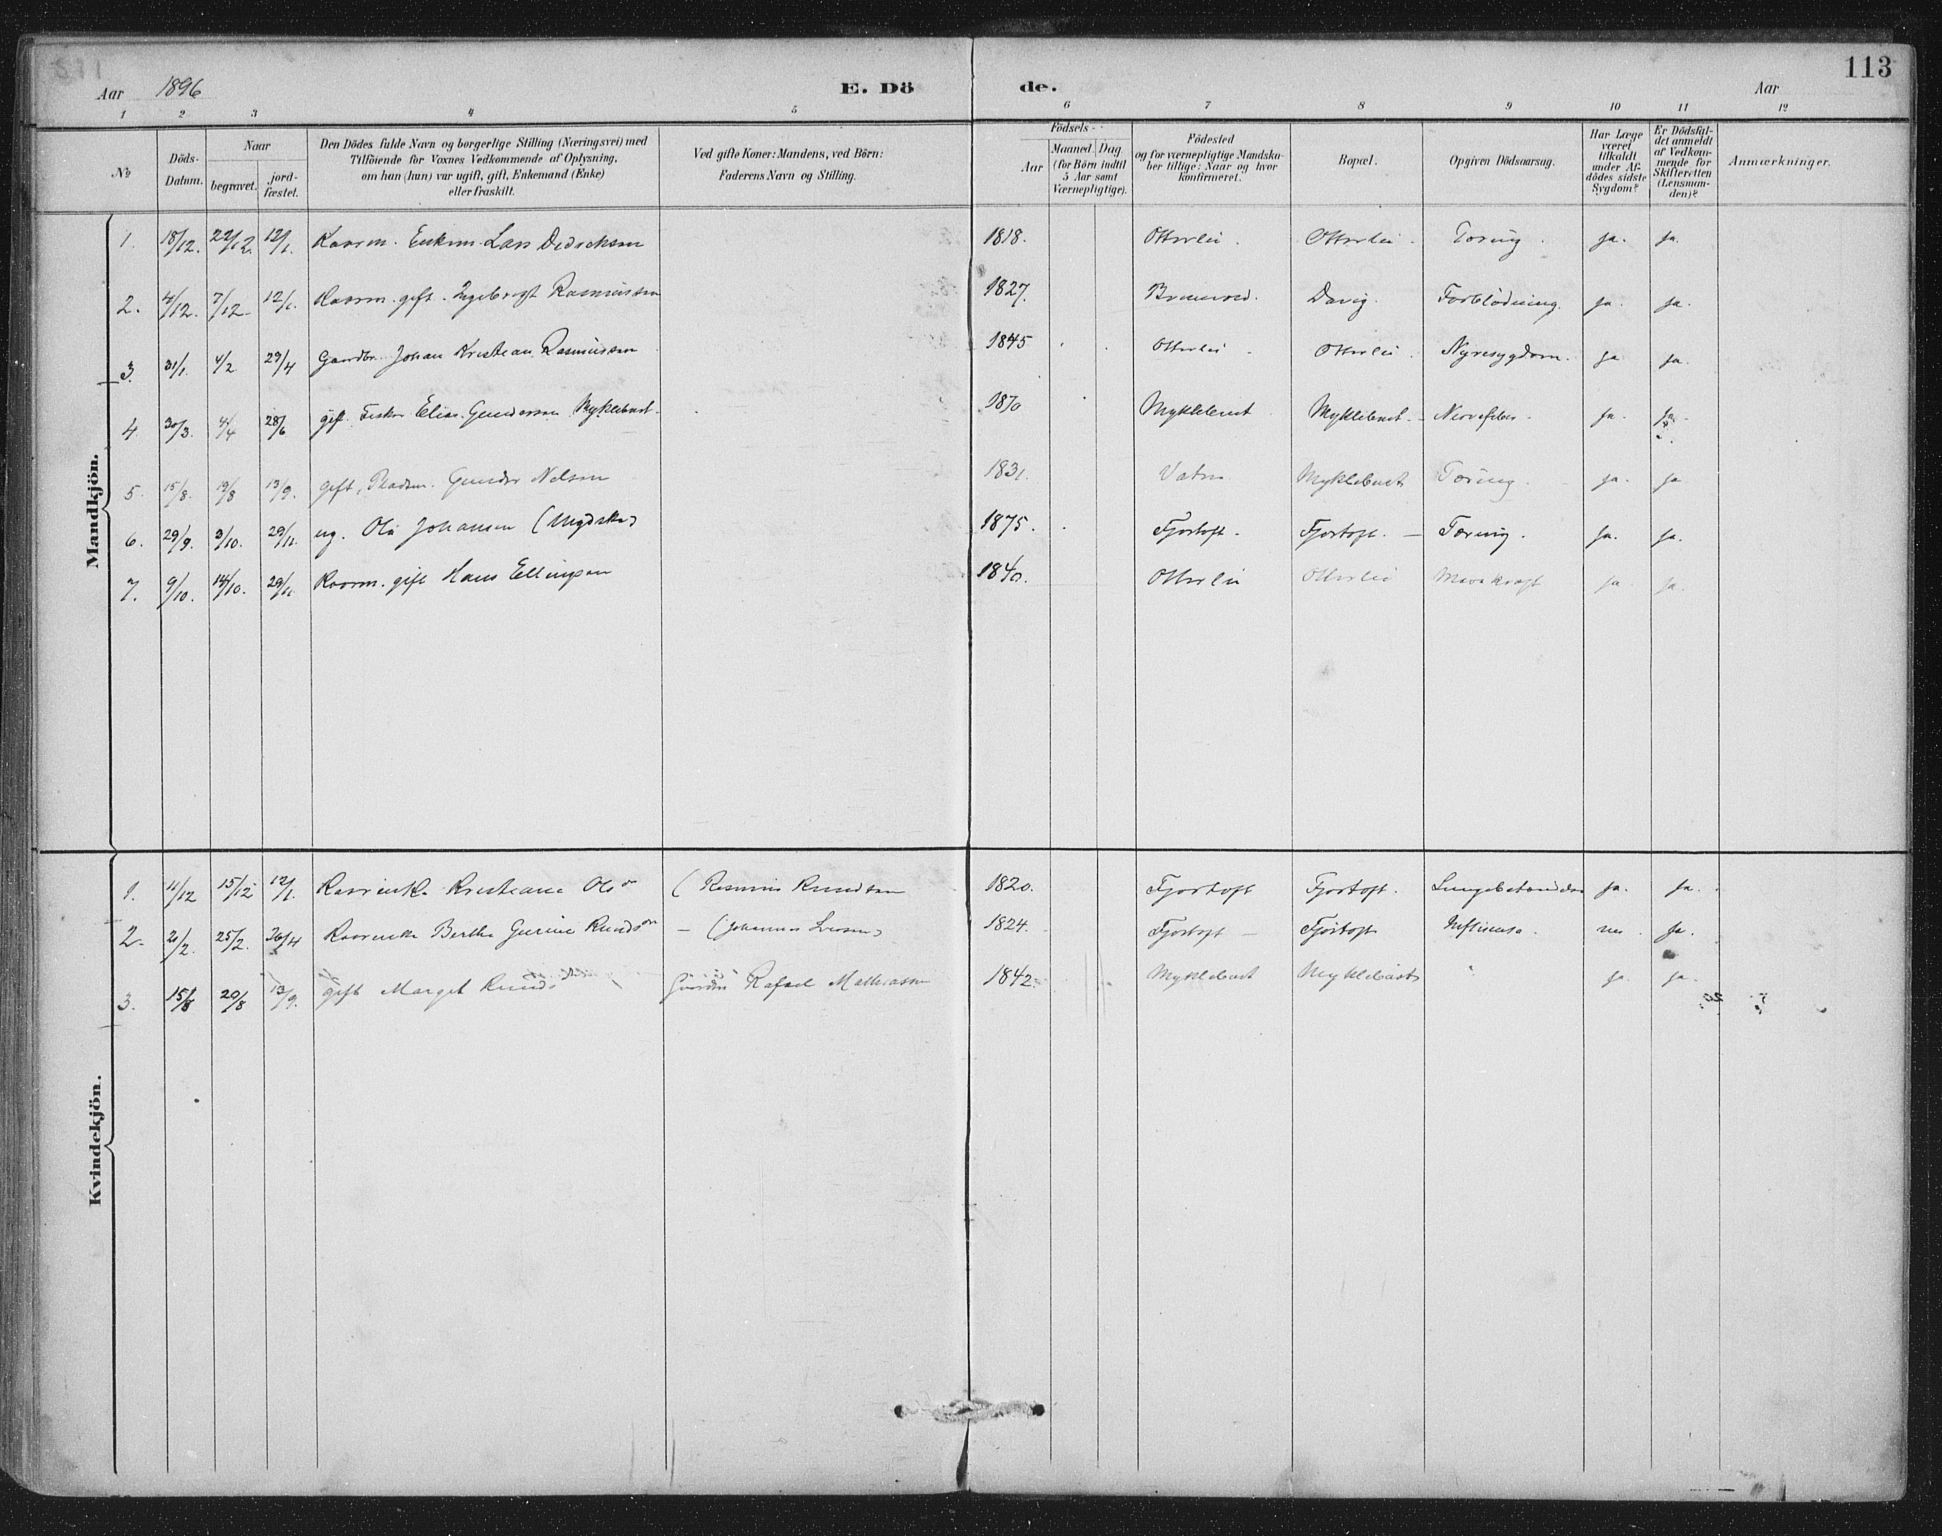 113
Aar 1896 E. Dö de. Aar
1 2 3 4 5 6 7 8 9 10 11 12
№
Döds-
Datum.
Naar
begravet.
jord-
fæstet.
Den Dödes fulde Navn og borgerlige Stilling (Næringsvei) med
Tilföiende for Voxnes Vedkommende af Oplysning,
om han (hun) var ugift, gift, Enkemand (Enke)
eller fraskilt.
Ved gifte Koner: Mandens, ved Börn:
Faderens Navn og Stilling.
Födsels-
Aar
Maaned. Dag
(for Börn indtil
5 Aar samt
Værnepligtige).
Födested
og for værnepligtige Mandska-
ber tillige: Naar og hvor
konfirmeret.
Bopæl.
Opgiven Dödsaarsag.
Har Læge
været
tilkaldt
under Af-
dödes sidste
Sygdom?
Er Dödsfal-
det anmeldt
af Vedkom-
mende for
Skifteretten
(Lensman-
den)?
Anmærkninger.
Mandkjön.
1. 18/12. 22/12. 12/1. Kaarm. Enkem. Lars Didriksen 1818. Otterlei. Otterlei. Tæring. ja. ja.
2. 4/12. 7/12. 12/1. Kaarm. gift. Ingebrigt Rasmussen 1827. Davig. Forblödning. ja. ja.
3. 31/1. 4/2 29/4 Gaardbr. Johan Kristian Rasmussen 1845 Otterlei. Otterlei. Nyresygdom. ja ja.
4. 30/3. 4/4 28/6 gift. Fisker Elias Gunderson Myklebust. 1870 Myklebust Myklebust. Nervefeber. ja. ja.
5. 15/8. 19/8 13/9. gift, Gunder Nelson 1831. Vatne Myklebust Tæring. ja. ja
6. 29/9. 3/10. 29/11. ug. Ole Johansen 1875. Fjortoft. Fjortoft. Tæring. ja. ja.
7. 9/10. 14/10. 29/11. Kaarm. gift Hans Ellingsen 1840. Otterlei Otterlei Mavekræft ja ja.
Kvindekjön.
1. 11/12 15/12 12/1. Kristiane Olsdr (Rasmus Knudsen 1820. Fjortoft Fjortoft. Lungebetændelse ja. ja.
2. 21/2. 25/2. 26/4 Berthe Gurine Knudsdr (Johannes 1824. Fjortoft Fjortoft Influensa. nei. ja.
3. 15/8 20/8 13/9. gift Marget Knudsdr Gaardbr Rafael Mathiassen 1842 Myklebust Myklebust " ja. ja.